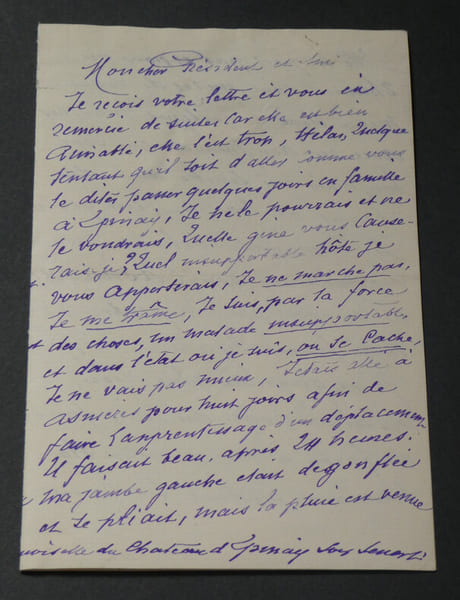 Mon cher Président et Ami
Je reçois votre lettre et vous en
remercie de suite, Car elle est bien
Aimable, elle l'est trop, Hélas, Quelque
tentant qu'il soit d'aller Comme vous
le dites passer quelques jours en famille
à Epinay, Je ne le pourrais et ne
le voudrais, Quelle gêne vous Cause-
rais-je, Quel insupportable hôte je
vous apporterais, Je ne marche pas,
Je me traîne, Je suis, par la force
des choses, un malade insupportable,
et dans l'état où je suis, on se Cache,
Je ne vais pas mieux, J'étais allé à
Asnières pour huit jours afin de
faire l'apprentissage d'un déplacement
Il faisait beau, après 24 heures,
Ma jambe gauche était dégonflée
et se pliait, mais la pluie est venue
du Chateau d'Epinay Sous